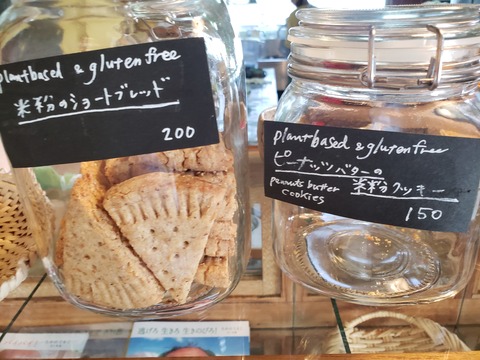 plantbased & glutenfree
米粉のショートブレッド
200
plantbased & glutenfree
ピーナッツバターの
peanuts butter 米粉クッキー
cookies
150
逃げろ 生きろ 生きのびろ!